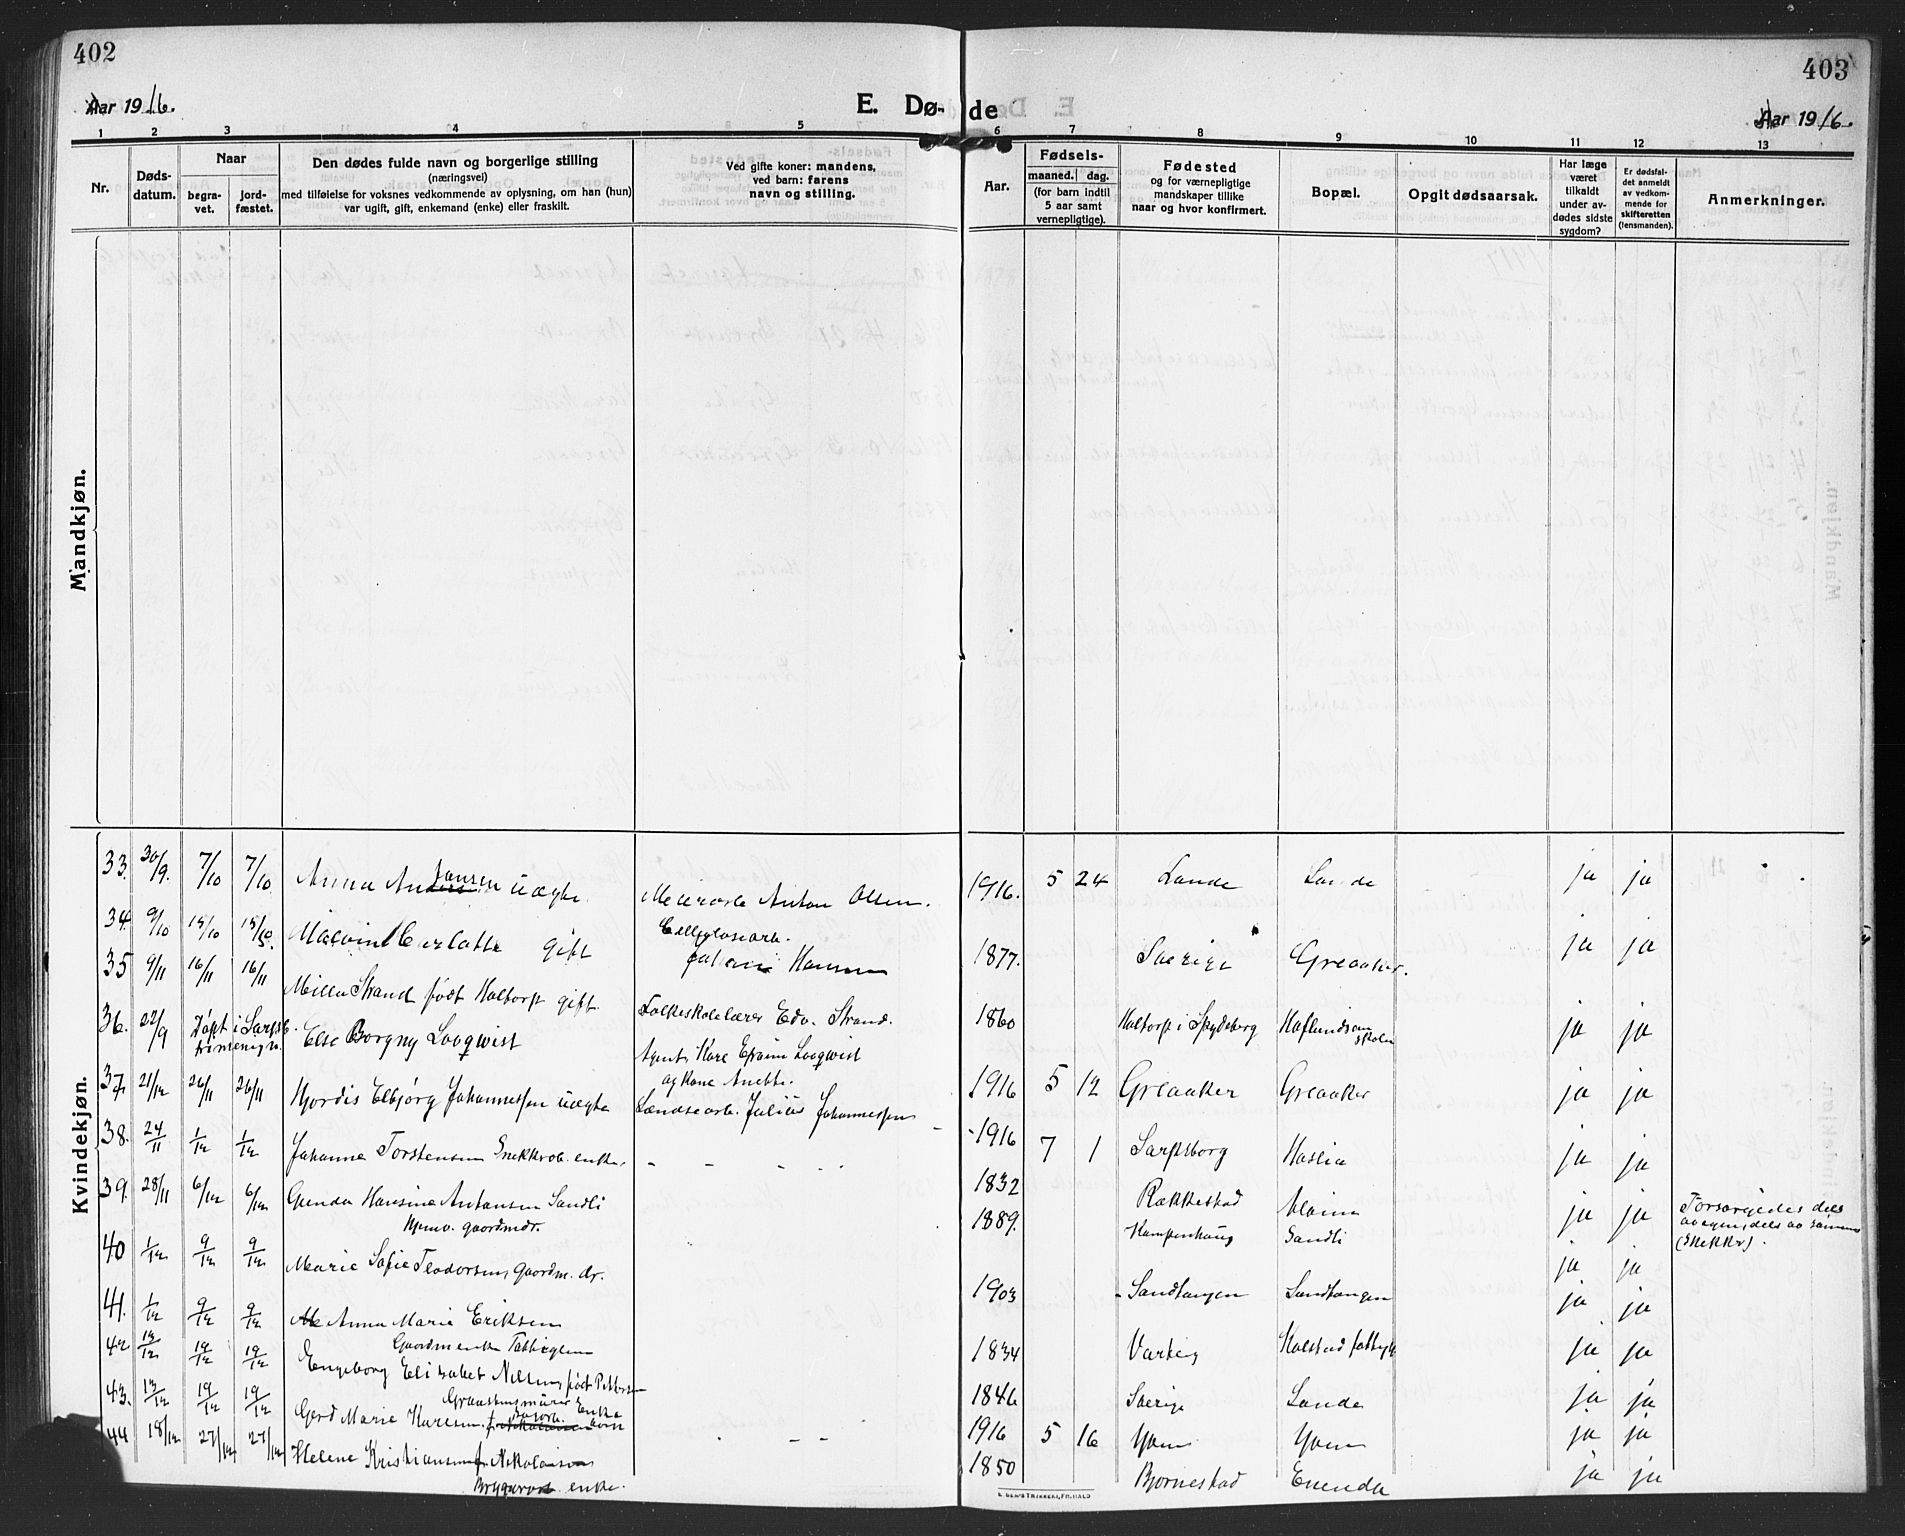 402
403
Aar 1916.
E. Dø-
de
Aar 1916.
1 2 3 4 5 6 7 8 9 10 11 12 13
Nr.
Døds-
datum.
Naar
begra-
vet.
jord-
fæstet.
Den dødes fulde navn og borgerlige stilling
(næringsvei)
med tilføielse for voksnes vedkommende av oplysning, om han (hun)
var ugift, gift, enkemand (enke) eller fraskilt.
Ved gifte koner: mandens,
ved barn: farens
navn og stilling.
Aar.
Fødsels-
maaned. dag.
(for barn indtil
5 aar samt
vernepligtige).
Fødested
og for værnepligtige
mandskaper tillike
naar og hvor konfirmert.
Bopæl.
Opgit dødsaarsak.
Har læge
været
tilkaldt
under av-
dødes sidste
sygdom?
Er dødsfal-
det anmeldt
av vedkom-
mende for
skifteretten
(lensmanden).
Anmerkninger.
Mandkjøn.
Kvindekjøn.
33. 30/9. 7/10 7/10. Anna Jansen uægte. Meieriarb. Anton Olsen. 1916. 5 24 Lande Lande ja ja
34. 9/10 15/10 15/10 Charlotte gift Cellulosearb.
Hansen 1877. Sverige Greaaker. ja ja
35 9/11 16/11 16/11 Milla Strand født Haltorp gift. Folkeskolelærer Edv. Strand. 1860 Haltorp i Spydeberg Haflundsøen
skolen ja ja
36. 22/9 Døpt i Sarpsb.
Else Borgny Looqwist Agent Kare Efraim Looqwist
og kone Anette. 1916 5 12 Greaaker Greaaker ja ja
37. 21/12 26/11 26/11 Hjordis Elbjørg Johannessen uægte Lændsearb. Julius Johannessen - 1916 7 1 Sarpsborg Haslia ja ja
38. 24/11 1/12 1/12 Johanne Torstensen Snekkerarb. enke. - - - - - 1832 Rakkestad Alvim ja ja Forsørgedes dels
av egen, dels av sønnens
(Snekker).
39. 28/11 6/12 6/12 Gunda Hansine Antonsen Sandli
Hjemv. gaardmdr. 1889. Kampenhaug Sandli ja ja
40 1/12 9/12 9/12 Marie Sofie Teodorsen, gaardm. dr. 1903 Sandtangen Sandtangen ja ja
41. 1/12 9/12 9/12 Anna Marie Eriksen
Gaardm enke Fattiglem 1834 Varteig Kalstad fattigg. ja ja
42 13/12 19/12 19/12 Engeborg Elisabet Nilsen, født Pettersen
Graastensmurer Enke 1846 Sverige Lande ja ja
43. 13/12 19/12 19/12 Gerd Marie Karlsen 1916 5 16 Yven Yven ja ja
44 18/12 27/12 27/12 Helene Kristiansen f. Nikolaisen
Bryggearb enke. - - 1850 Bjørnestad Enenda ja ja